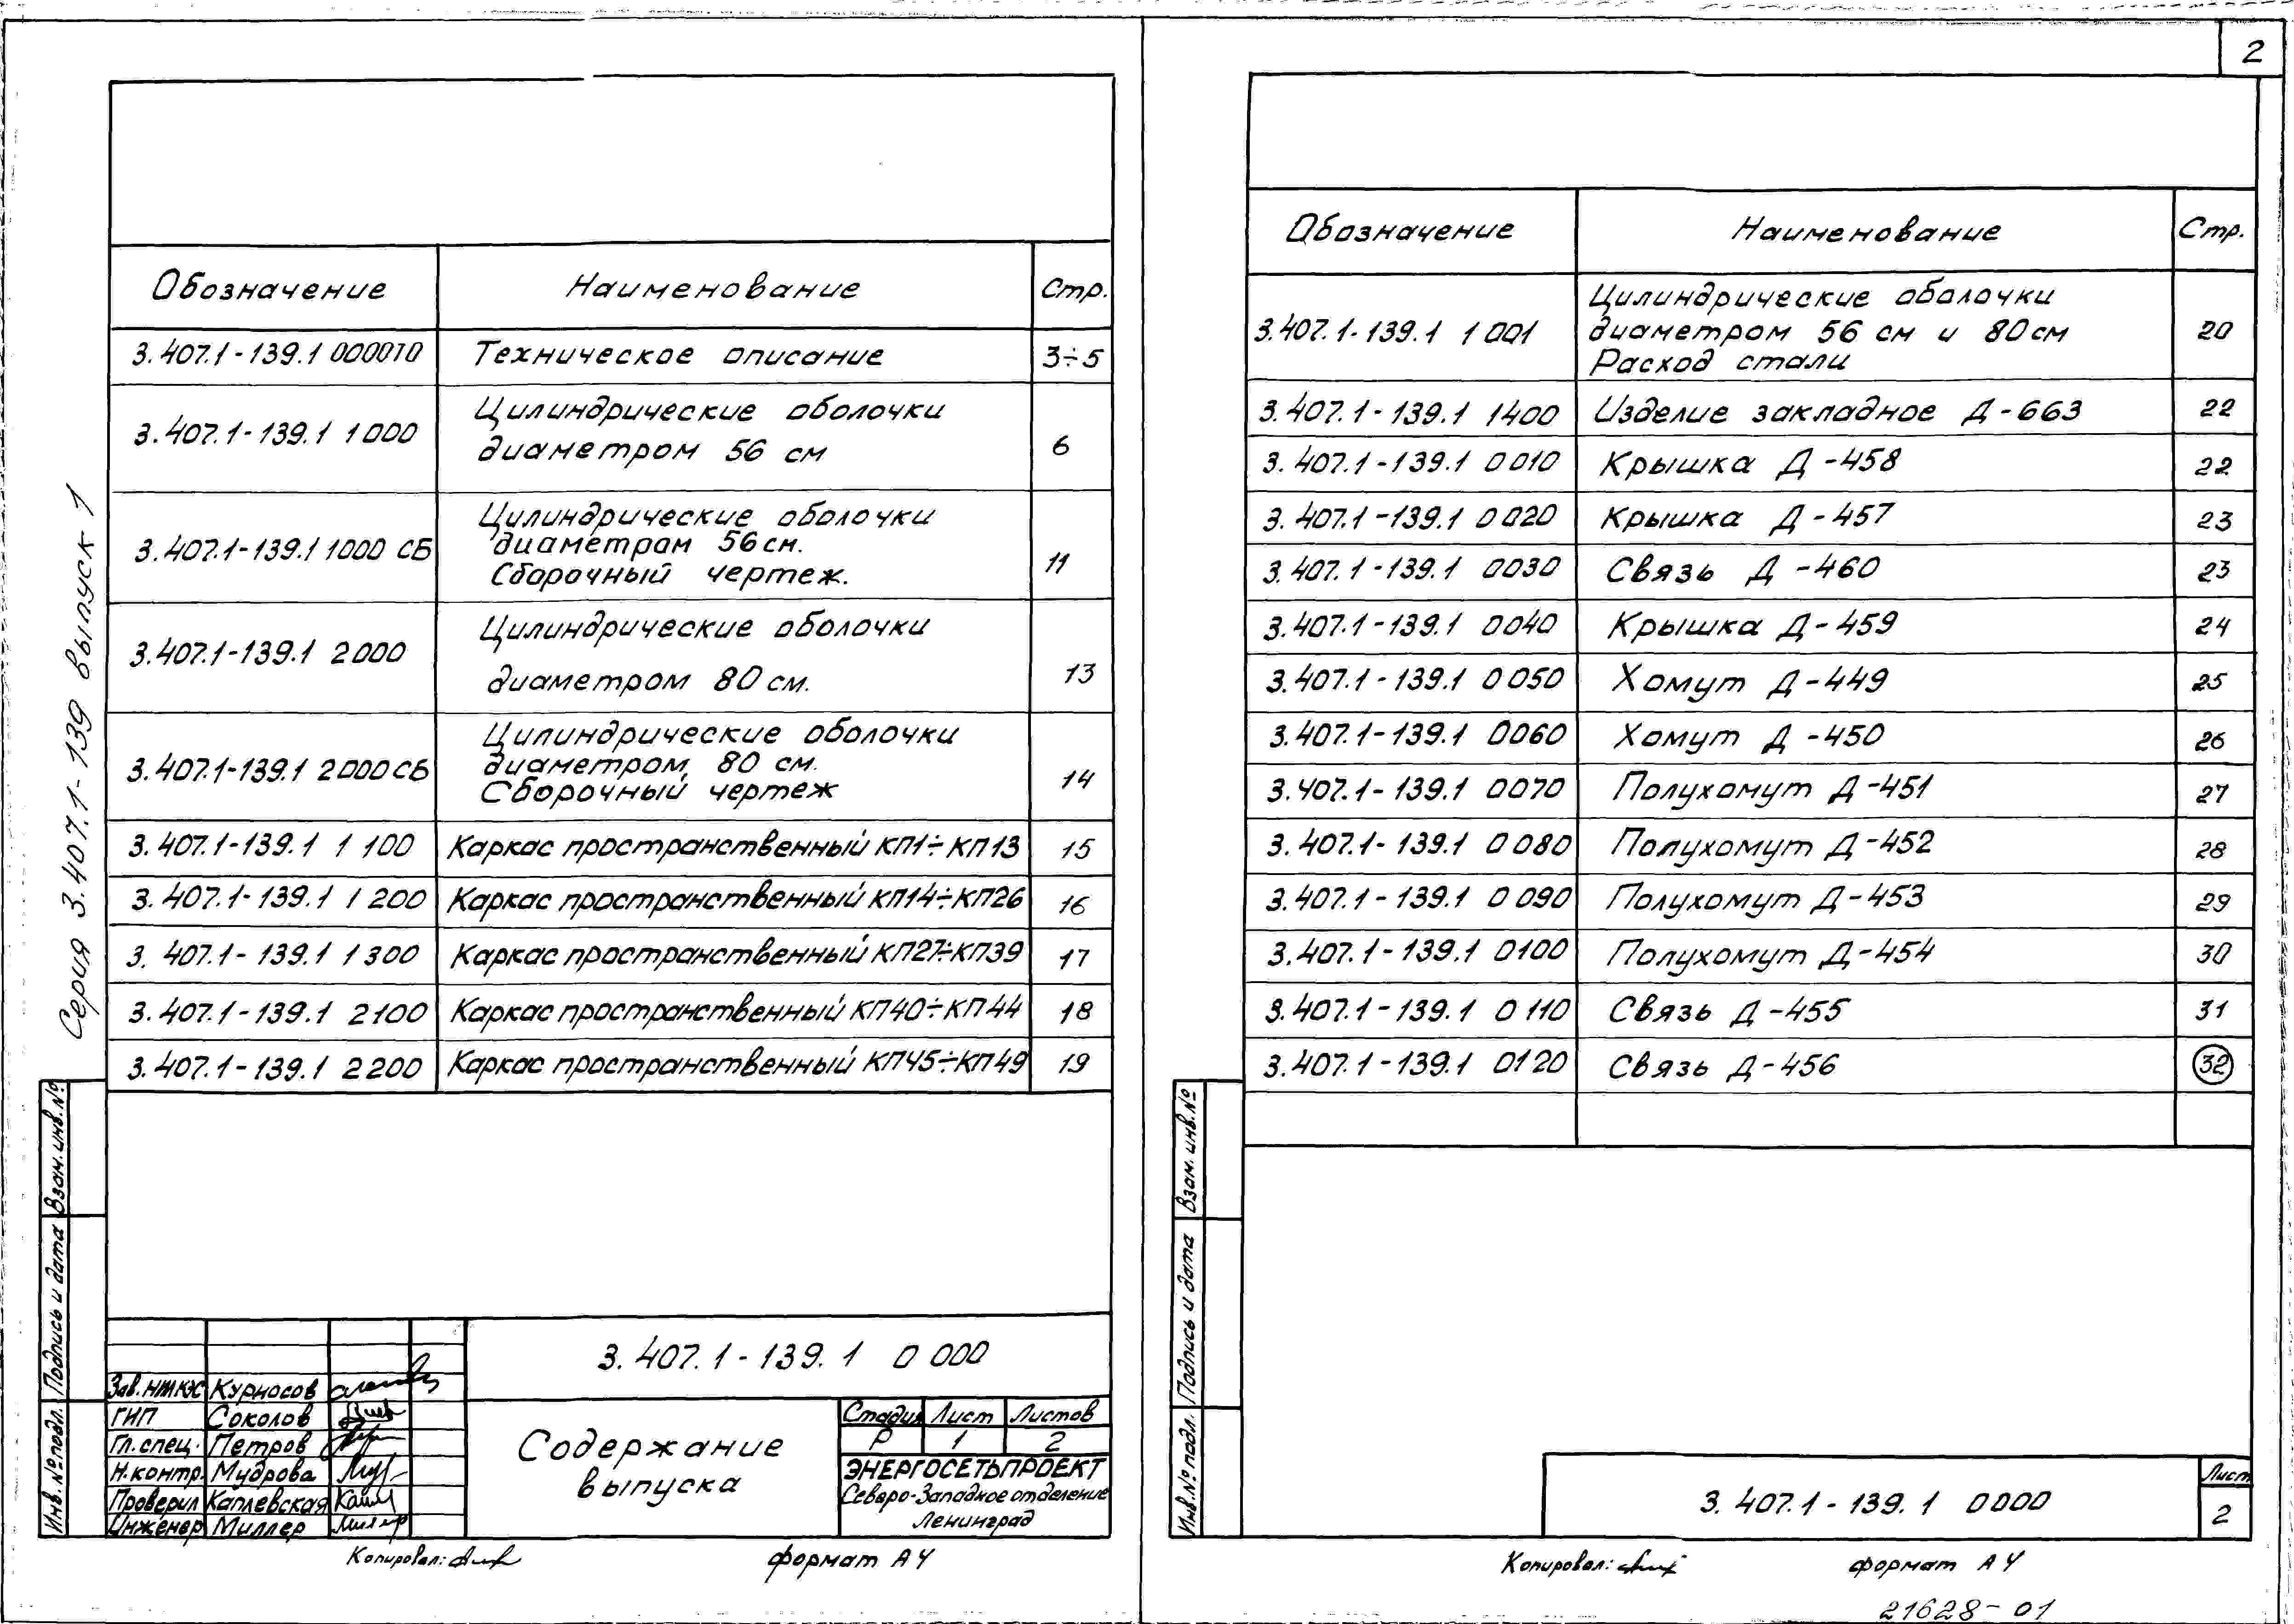 2
Серия 3.407.1-139 выпуск 1
Обозначение Наименование Стр.
3.407.1-139.1 0000ТО Техническое описание 3÷5
3.407.1-139.1 1000 Цилиндрические оболочки
диаметром 56 см 6
3.407.1-139.1 1000 СБ Цилиндрические оболочки
диаметром 56 см.
Сборочный чертеж. 11
3.407.1-139.1 2000 Цилиндрические оболочки
диаметром 80 см. 13
3.407.1-139.1 2000 СБ Цилиндрические оболочки
диаметром 80 см.
Сборочный чертеж 14
3.407.1-139.1 1 100 Каркас пространственный КП1÷КП13 15
3.407.1-139.1 1 200 Каркас пространственный КП14÷КП26 16
3.407.1-139.1 1 300 Каркас пространственный КП27÷КП39 17
3.407.1-139.1 2100 Каркас пространственный КП40÷КП44 18
3.407.1-139.1 2200 Каркас пространственный КП45÷КП49 19
Взам. инв. №
Подпись и дата
Инв. № подл.
3.407.1-139.1 0 000
Зав. НТКЭС Курносов
ГИП Соколов
Гл. спец. Петров
Н. контр. Мудрова
Проверил Каплевская
Инженер Миллер
Содержание
выпуска
Стадия Лист Листов
Р 1 2
ЭНЕРГОСЕТЬПРОЕКТ
Северо-Западное отделение
Ленинград
Копировал:
формат А4
Обозначение Наименование Стр.
3.407.1-139.1 1 001 Цилиндрические оболочки
диаметром 56 см и 80 см
Расход стали 20
3.407.1-139.1 1400 Изделие закладное Д-663 22
3.407.1-139.1 0010 Крышка Д-458 22
3.407.1-139.1 0020 Крышка Д-457 23
3.407.1-139.1 0030 Связь Д-460 23
3.407.1-139.1 0040 Крышка Д-459 24
3.407.1-139.1 0050 Хомут Д-449 25
3.407.1-139.1 0060 Хомут Д-450 26
3.407.1-139.1 0070 Полухомут Д-451 27
3.407.1-139.1 0080 Полухомут Д-452 28
3.407.1-139.1 0090 Полухомут Д-453 29
3.407.1-139.1 0100 Полухомут Д-454 30
3.407.1-139.1 0110 Связь Д-455 31
3.407.1-139.1 0120 Связь Д-456 32
Взам. инв. №
Подпись и дата
Инв. № подл.
3.407.1-139.1 0000
Лист
2
Копировал:
формат А4
21628-01